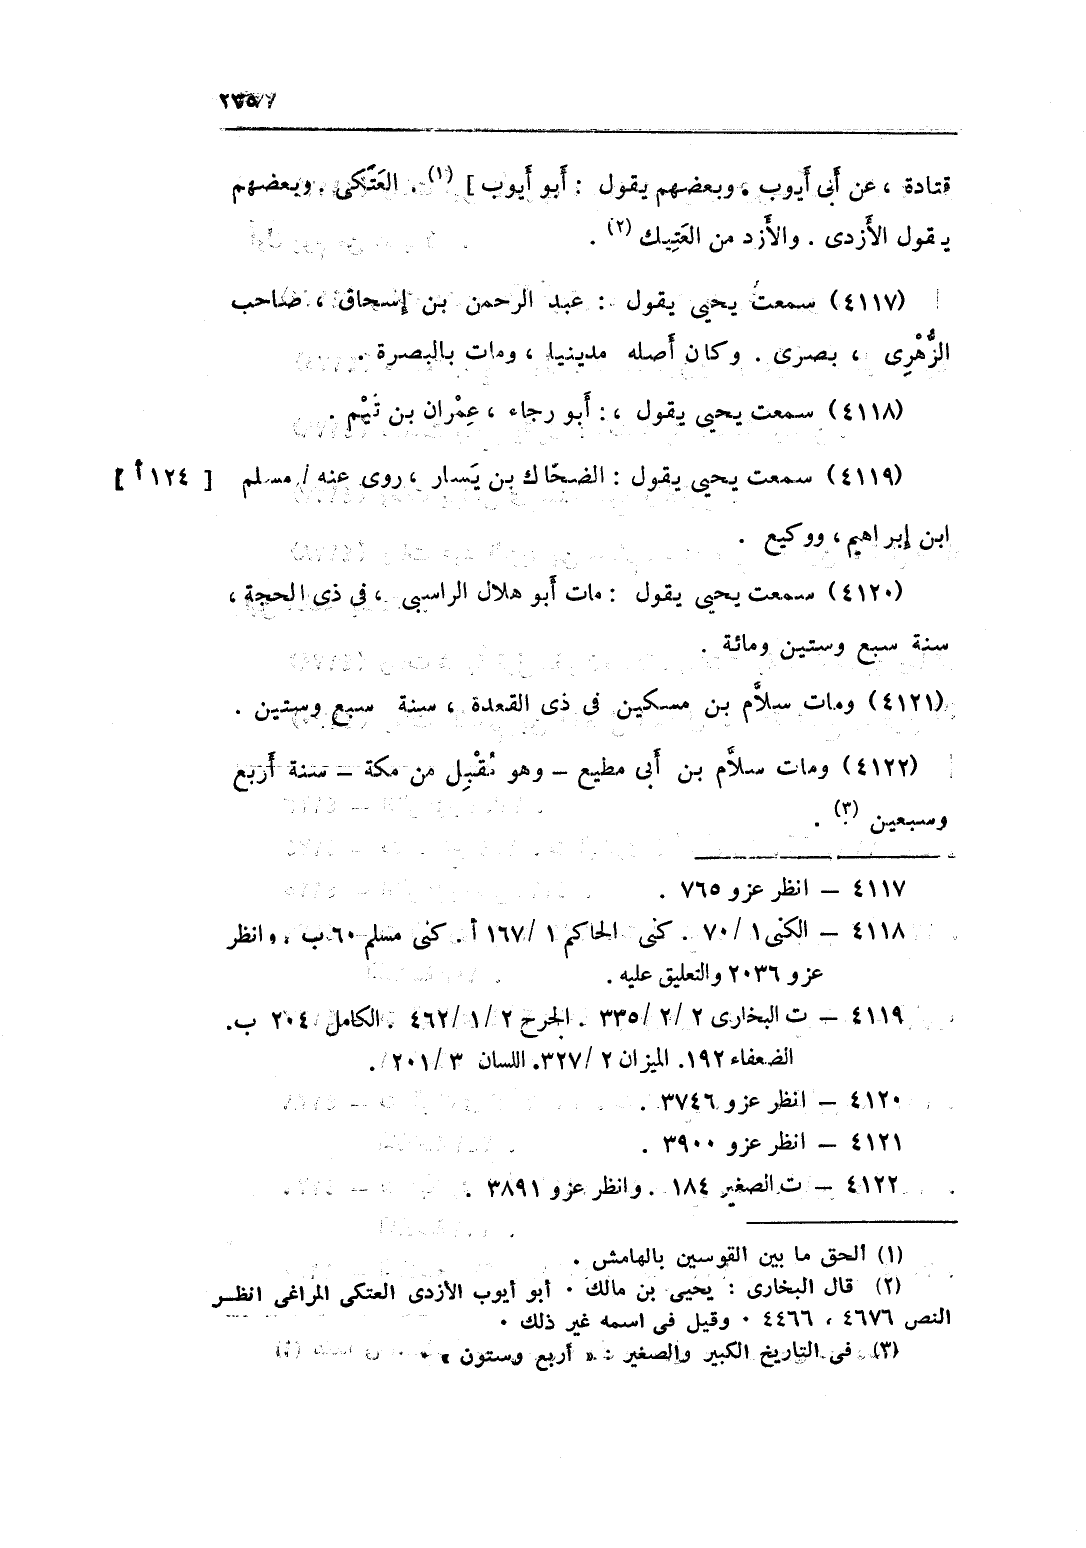 قتادة ، عن أبى أيوب ، وبعضهم يقول : أبو أيوب ] (١) . العَتَكى . وبعضهم
يقول الأَزدى . والأَزد من العَتِيك (٢) .
(٤١١٧) سمعت يحيى يقول : عبد الرحمن بن إسحاق ، صاحب
الزُّهْرِى ، بصرى . وكان أَصله مدينيا ، ومات بالبصرة .
(٤١١٨) سمعت يحيى يقول ، : أبو رجاء ، عِمْران بن تَيْم .
(٤١١٩) سمعت يحيى يقول : الضحّاك بن يَسار ، روى عنه / مسلم [ ١٢٤ أ ]
ابن إبراهيم ، ووكيع .
(٤١٢٠) سمعت يحيى يقول : مات أبو هلال الراسبى ، فى ذى الحجة ،
سنة سبع وستين ومائة .
(٤١٢١) ومات سلاَّم بن مسكين فى ذى القعدة ، سنة سبع وستين .
(٤١٢٢) ومات سلاَّم بن أَبى مطيع – وهو مُقْبِل من مكة – سنة أَربع
وسبعين (٣) .
٤١١٧ – انظر عزو ٧٦٥ .
٤١١٨ – الكنى ١ /٧٠ . كنى الحاكم ١ /١٦٧ أ . كنى مسلم ٦٠ ب ، وانظر
عزو ٢٠٣٦ والتعليق عليه .
٤١١٩ – ت البخارى ٢ /٢ /٣٣٥ . الجرح ٢ /١ /٤٦٢ . الكامل ٢٠٤ ب.
الضعفاء ١٩٢. الميزان ٢ /٣٢٧. اللسان ٣ /٢٠١ .
٤١٢٠ – انظر عزو ٣٧٤٦ .
٤١٢١ – انظر عزو ٣٩٠٠ .
٤١٢٢ – ت الصغير ١٨٤ . وانظر عزو ٣٨٩١ .
(١) ألحق ما بين القوسين بالهامش .
(٢) قال البخارى : يحيى بن مالك . أبو أيوب الأزدى العتكى المراغى انظر
النص ٤٦٧٦ ، ٤٤٦٦ . وقيل فى اسمه غير ذلك .
(٣) فى التاريخ الكبير والصغير : « أربع وستون » .